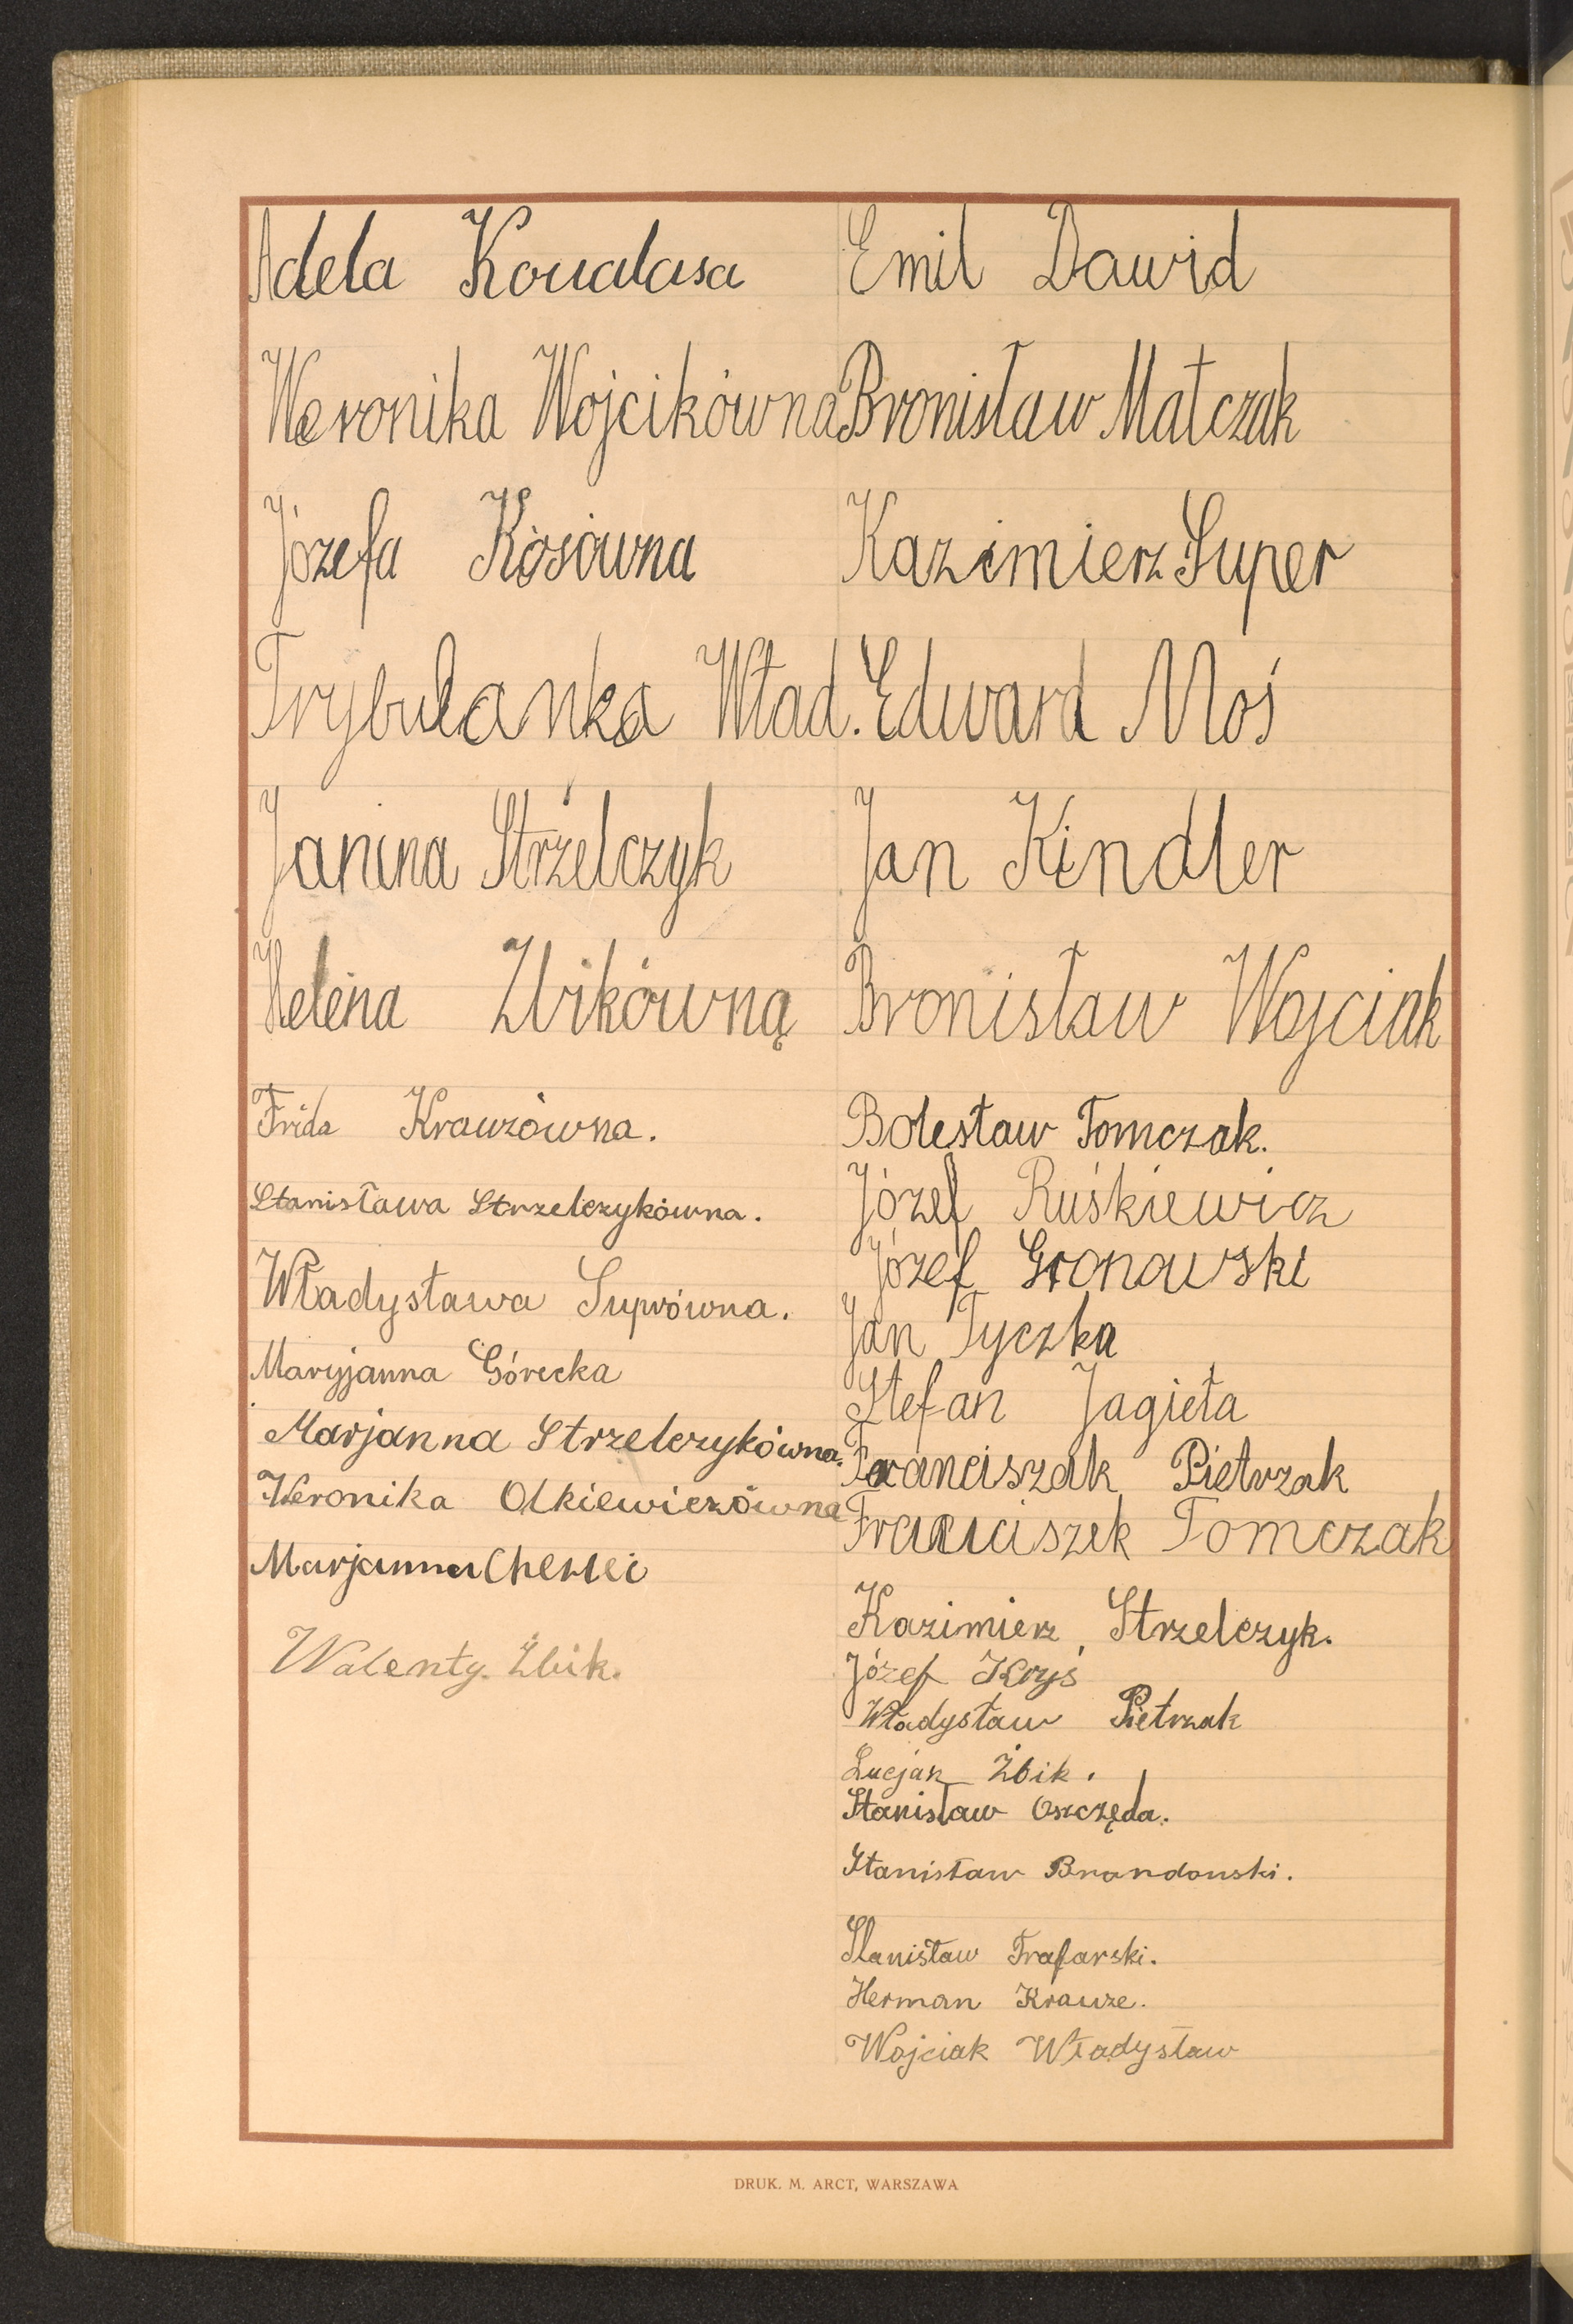 Adela Kowalasa
Weronika Wojcikówna
Józefa Kosówna
Trybulanka Wład.
Janina Strzelczyk
Helena Zbikówną
Frida Krauzówna.
Stanisława Strzelczykówna.
Władysława Suprówna.
Maryjanna Górecka
Marjanna Strzelczykówna.
Weronika Olkiewiczówna
Marjanna
Walenty Zbik.
Emil Dawid
Bronisław Matczak
Kazimierz Super
Edward Moś
Jan Kindler
Bronisław Wojciak
Bolesław Tomczak.
Józef Ruśkiewicz
Józef Gronowski
Jan Tyczka
Stefan Jagieła
Franciszak Pietrzak
Franciszek Tomczak
Kazimierz Strzelczyk.
Józef Kryś
Władysław Pietrzak
Lucjan Żbik.
Stanisław Oszczęda.
Stanisław Brandowski.
Stanisław Trafarski.
Herman Krauze.
Wojciak Władysław
DRUK. M. ARCT, WARSZAWA